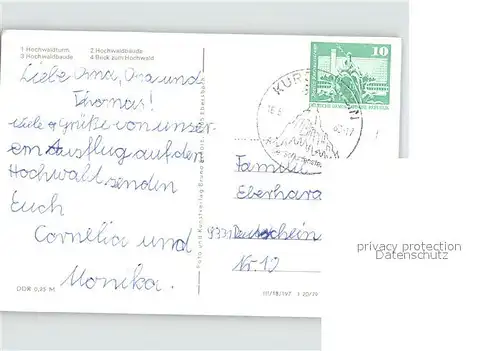 1 Hochwaldturm 2 Hochwaldbaude
3 Hochwaldbaude 4 Blick zum Hochwald
Liebe Oma, Opa und
Thomas!
viele Grüße von unser-
em Ausflug auf den
Hochwald senden
Euch
Cornelia und
Monika.
DDR 0,95 M
10
KURORT
Familie
Eberhard
9331 Deutschein
Nr. 12
privacy protection
Datenschutz